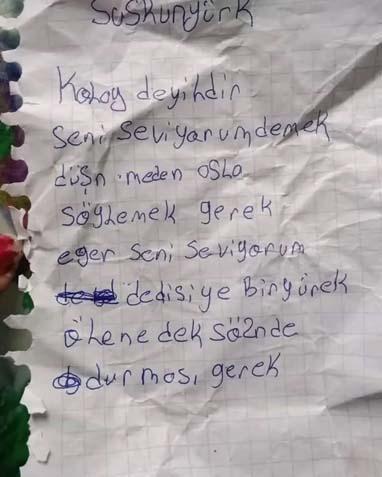 Suskunyürk
Kolay deyihdir
seni seviyorumdemek
düşn.meden asla
söylemek gerek
eger seni seviyorum
dedisiye Biryürek
ölene dek sözünde
durması gerek